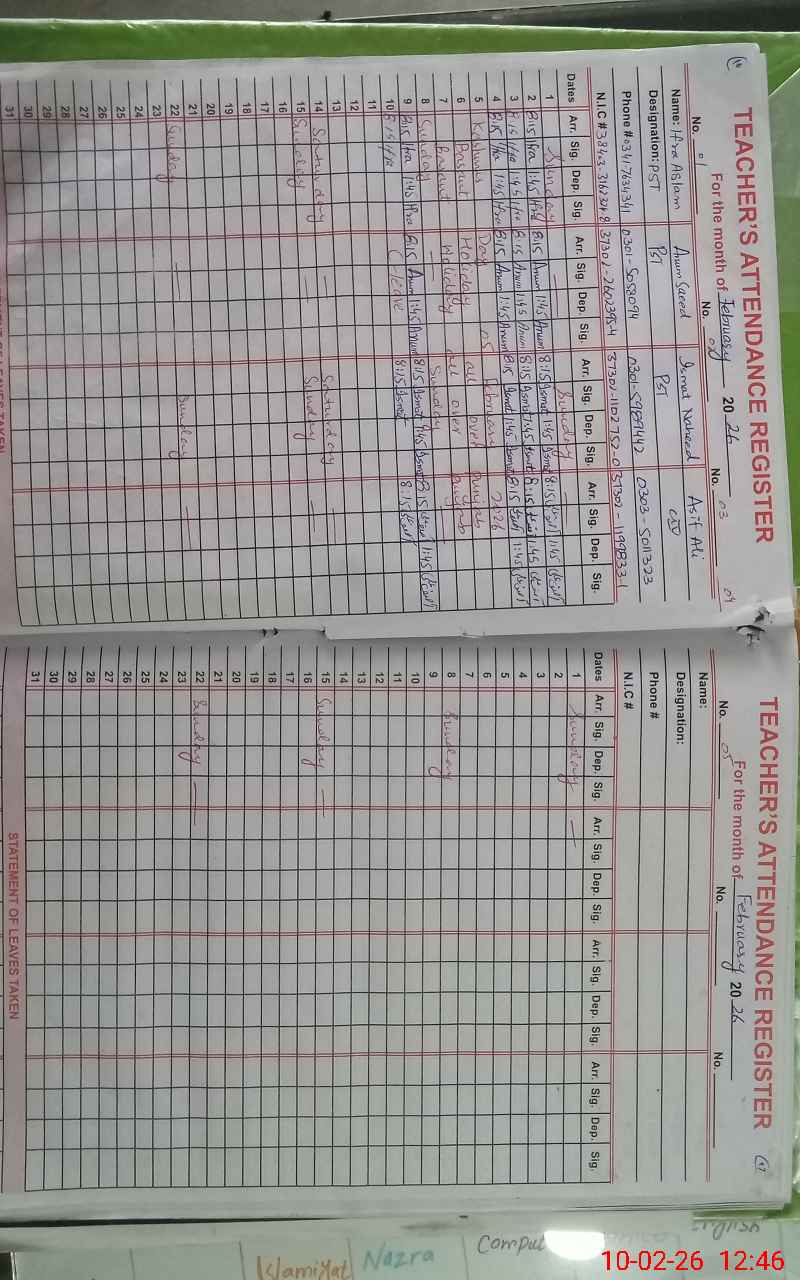 TEACHER'S ATTENDANCE REGISTER
For the month of February 2026
No. 01 No. 02 No. 03 04
Name: Ifra Aslam Anum Saeed Ismat Naheed Asif Ali
Designation: PST PST PST
Phone # 0341-7634341 0301-5058094 0301-5989442 0303-5011323
N.I.C #
Dates Arr. Sig. Dep. Sig. Arr. Sig. Dep. Sig. Arr. Sig. Dep. Sig. Arr. Sig. Dep. Sig.
1 Sunday — Sunday —
2 8:15 Ifra 1:45 Ifra 8:15 Anum 1:45 Anum 8:15 Ismat 1:45 Ismat 8:15 1:45
3 8:15 Ifra 1:45 Ifra 8:15 Anum 1:45 Anum 8:15 Ismat 1:45 Ismat 8:15 1:45
4 8:15 Ifra 1:45 Ifra 8:15 Anum 1:45 Anum 8:15 Ismat 1:45 Ismat 8:15 1:45
5 Kashmir Day 05 February 2026
6 Basant Holiday all over punjab
7 Basant Holiday all over punjab
8 Sunday — Sunday —
9 8:15 Ifra 1:45 Ifra 8:15 Anum 1:45 Anum 8:15 Ismat 1:45 Ismat 8:15 1:45
10 8:15 Ifra C-leave 8:15 Ismat 8:15
11
12
13
14 Saturday — Saturday —
15 Sunday — Sunday —
16
17
18
19
20
21
22 Sunday — Sunday —
23
24
25
26
27
28
29
30
31
TEACHER'S ATTENDANCE REGISTER
For the month of February 2026
No. 05 No. No.
Name:
Designation:
Phone #
N.I.C #
Dates Arr. Sig. Dep. Sig. Arr. Sig. Dep. Sig. Arr. Sig. Dep. Sig. Arr. Sig. Dep. Sig.
1 Sunday —
2
3
4
5
6
7
8 Sunday
9
10
11
12
13
14
15 Sunday —
16
17
18
19
20
21
22 Sunday —
23
24
25
26
27
28
29
30
31
STATEMENT OF LEAVES TAKEN
Islamiyat Nazra Comput
10-02-26 12:46